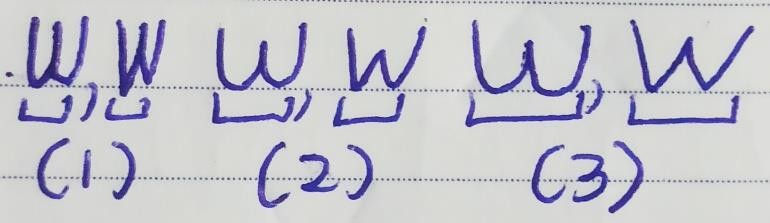 W, W W, W W, W
(1) (2) (3)